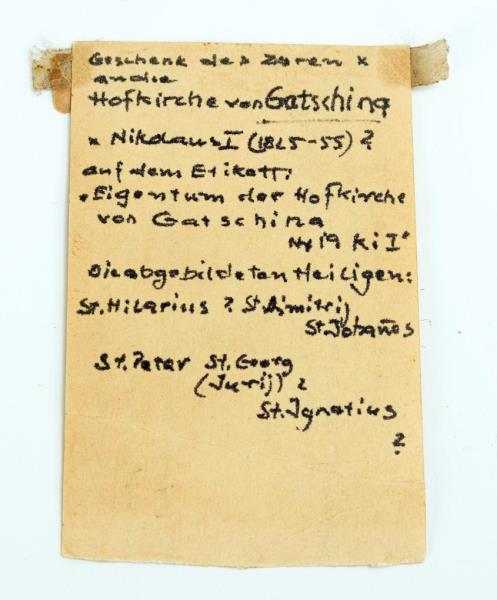 Geschenk des Zaren x
an die
Hofkirche von Gatschina
x Nikolaus I (1825-55) ?
auf dem Etikett:
"Eigentum der Hofkirche
von Gatschina
Nr 19 Ki I"
Die abgebildeten Heiligen:
St. Hilarius ? St. Dimitrij
St. Johanes
St. Peter St. Georg
(Jurij) ?
St. Ignatius
?